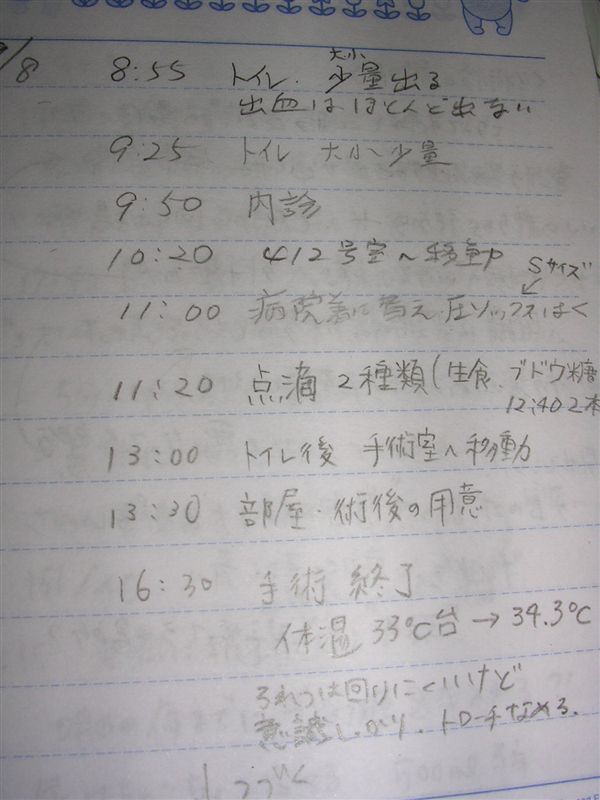 /8 8:55 トイレ. 大小 少量出る
出血はほとんど出ない
9:25 トイレ 大小少量
9:50 内診
10:20 412号室へ移動
Sサイズ
11:00 病院着に着え.圧ソックスはく
11:20 点滴 2種類(生食.ブドウ糖
12:40 2本
13:00 トイレ後 手術室へ移動
13:30 部屋.術後の用意
16:30 手術 終了
体温 33℃台→34.3℃
ろれつは回りにくいけど
意識しっかり.トローチなめる.
↓つづく